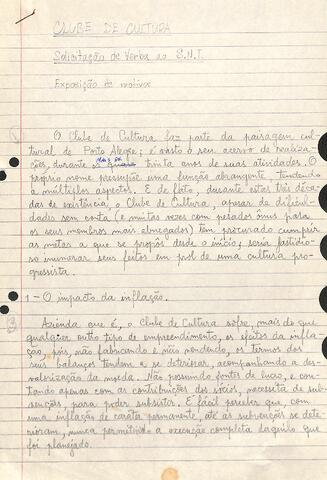 CLUBE DE CULTURA
Solicitação de Verba ao S.N.T.
Exposição de motivos
O Clube de Cultura faz parte da paisagem cul-
tural de Porto Alegre; é vasto o seu acervo de realiza-
ções, durante mais de trinta anos de suas atividades. O
próprio nome pressupõe uma função abrangente, tendendo
a múltiplos aspectos. E de fato, durante estas três déca-
das de existência, o Clube de Cultura, apesar de dificul-
dades sem conta (e muitas vezes com pesados ônus para
os seus membros mais abnegados) tem procurado cumprir
as metas a que se propôs desde o início; seria fastidio-
so inumerar seus feitos em prol de uma cultura pro-
gressista.
1 - O impacto da inflação.
que é, o Clube de Cultura sofre, mais do que
qualquer outro tipo de empreendimento, os efeitos da infla-
ção, pois, não fabricando e não vendendo, os termos dos
seus balanços tendem a se deteriorar, acompanhando a des-
valorização da moeda. Não possuindo fontes de lucro, e con-
tando apenas com as contribuições dos sócios, necessita de sub-
venções, para poder subsistir. É fácil perceber que, com
uma inflação de caráter permanente, até as subvenções se dete-
rioram, nunca permitindo a execução completa daquilo que
foi planejado.